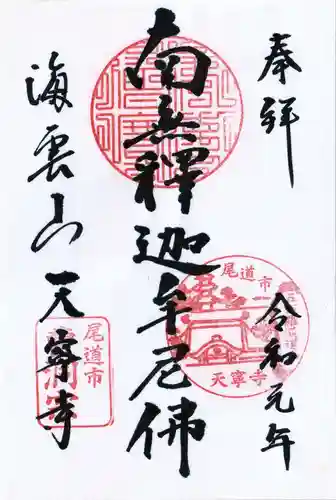 奉拜
令和元年
南無釋迦牟尼佛
海雲山天寧寺
尾道市
天寧寺
尾道市